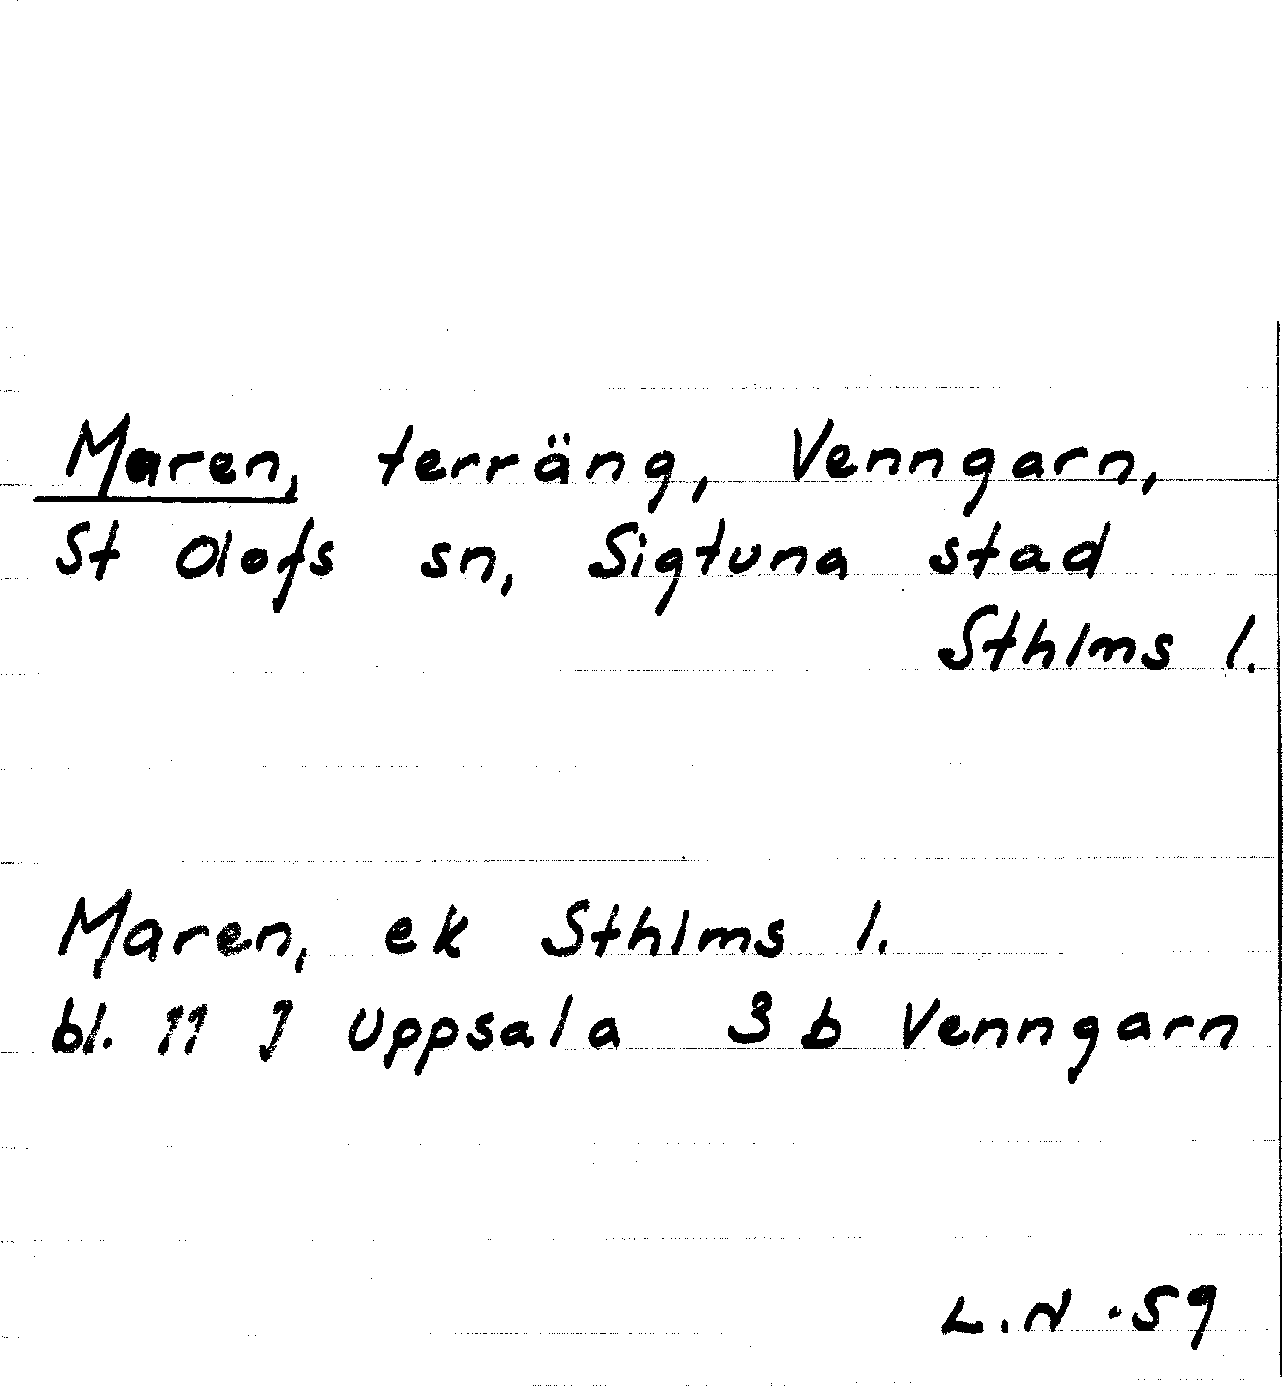 Maren, terräng, Venngarn,
St Olofs sn, Sigtuna stad
Sthlms l.
Maren, ek Sthlms l.
bl. 11 J Uppsala 3 b Venngarn
L.N -59